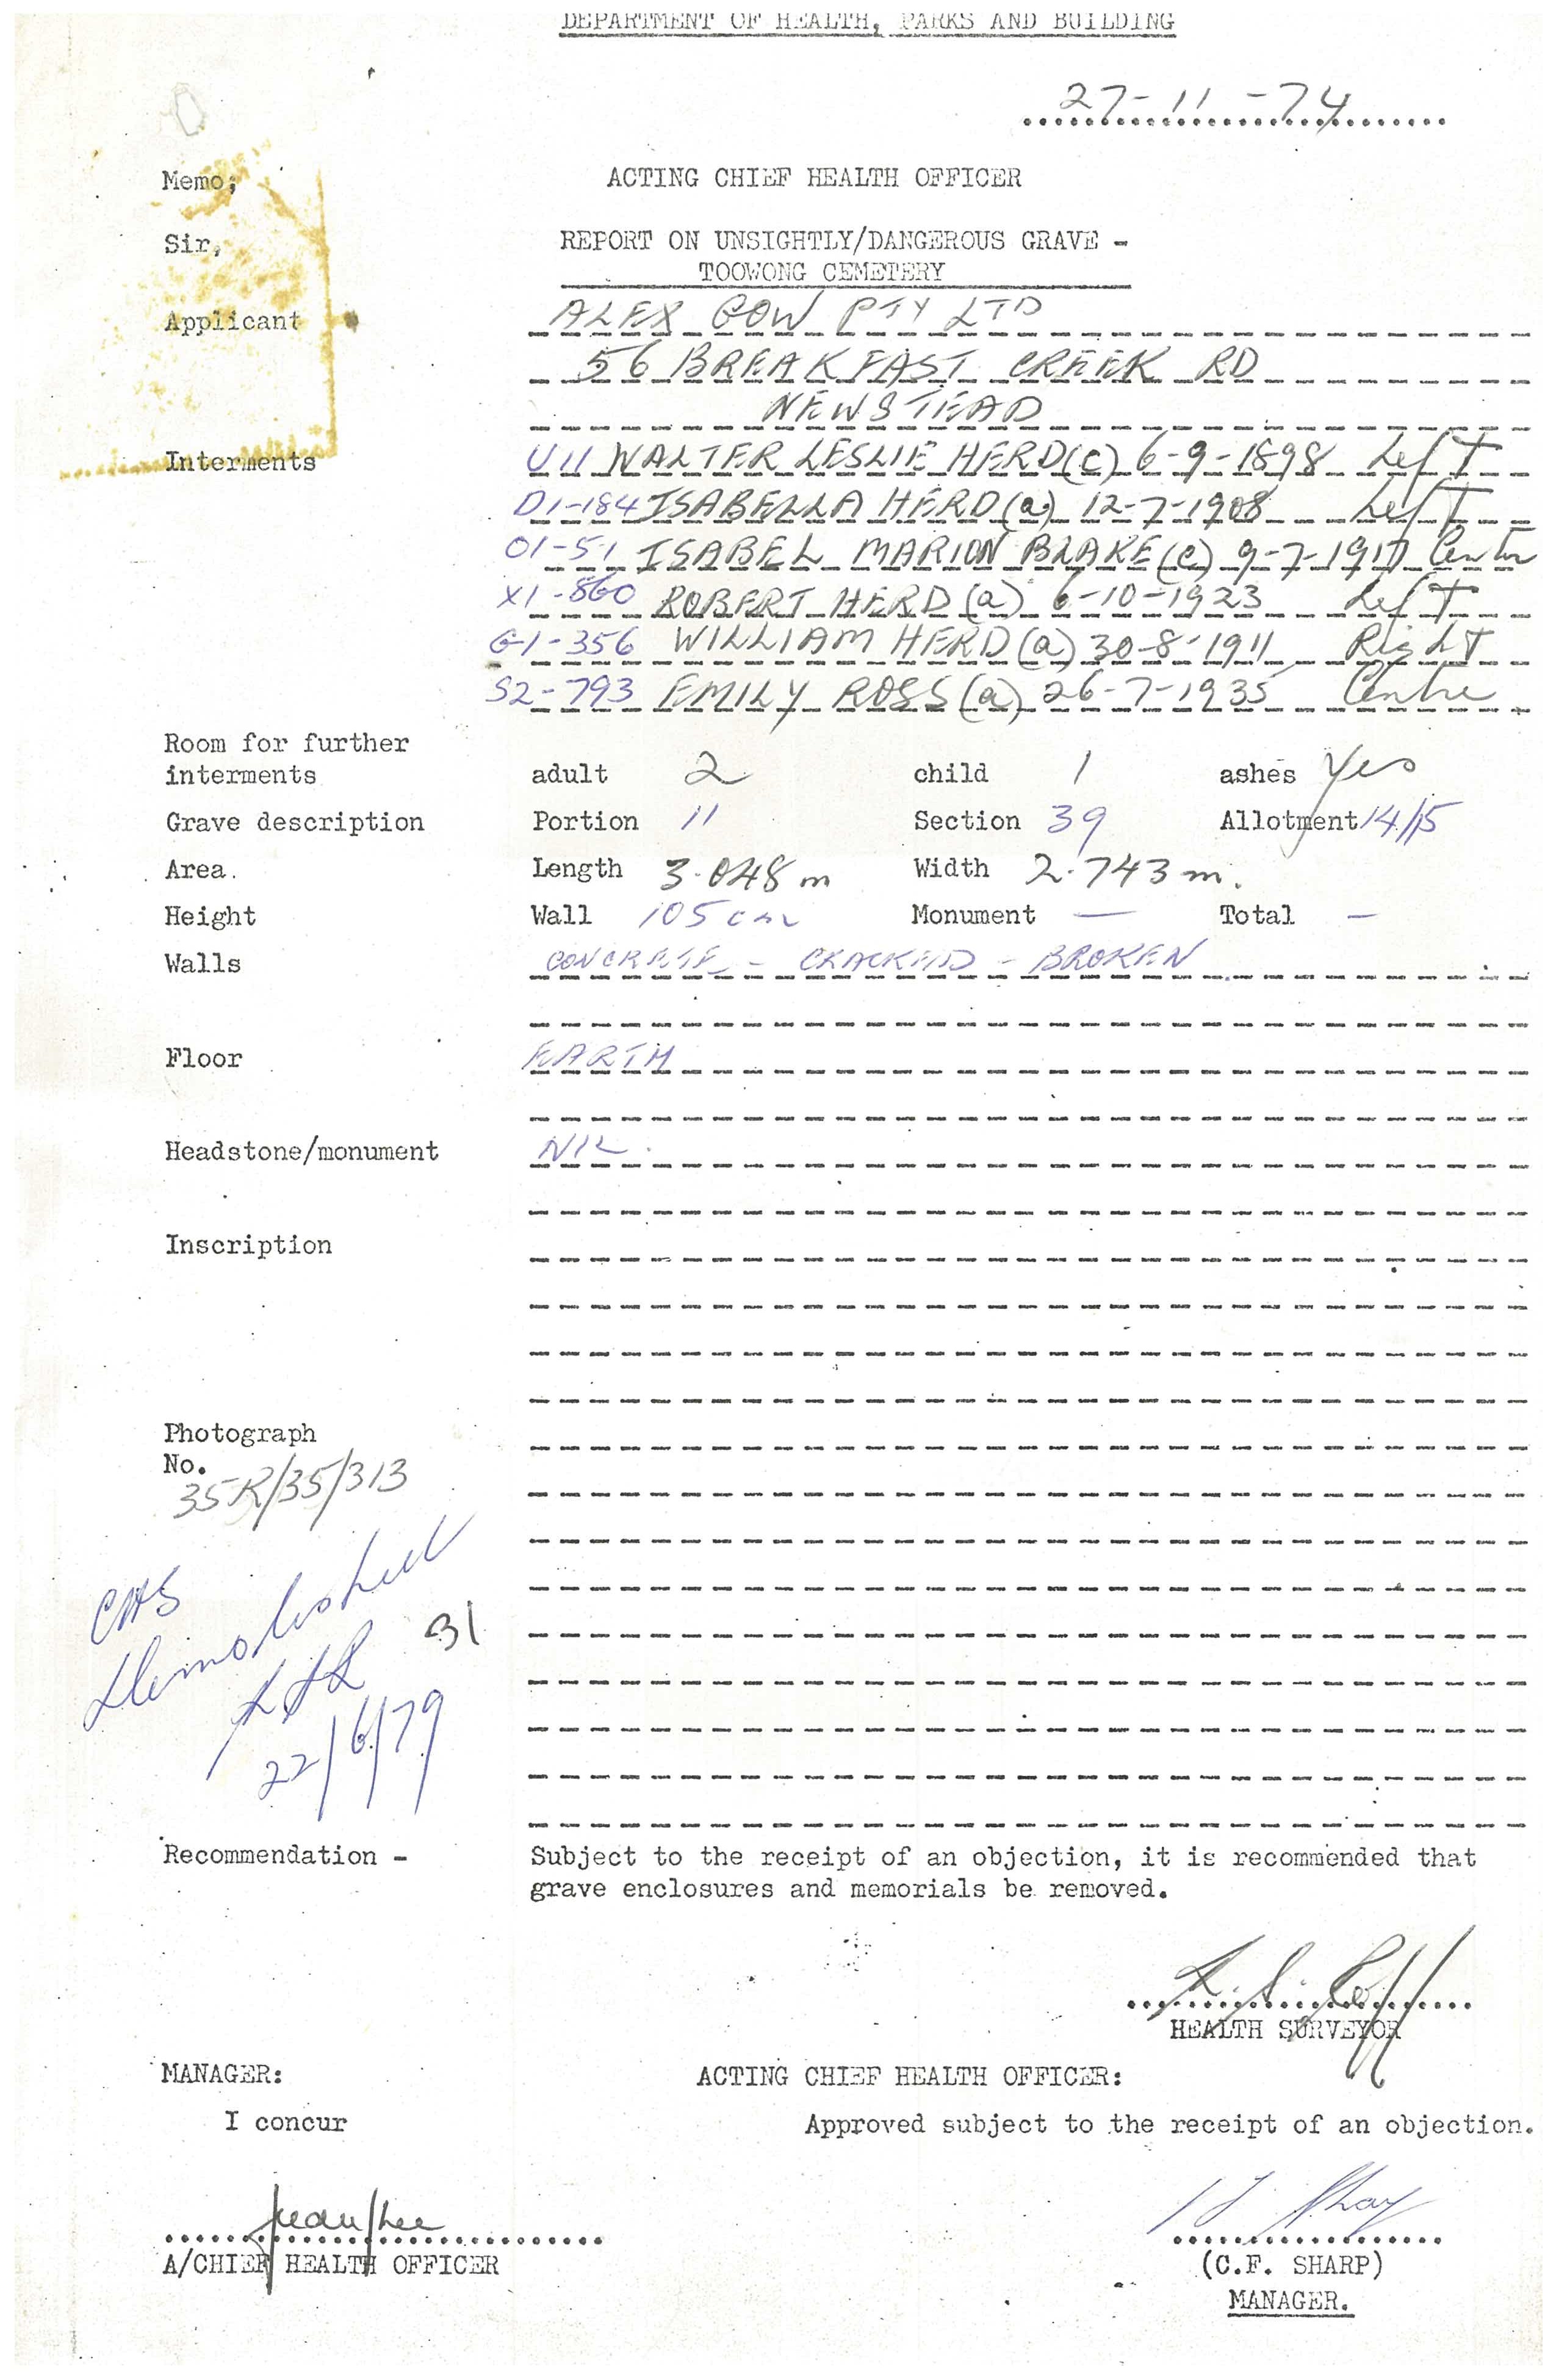 DEPARTMENT OF HEALTH, PARKS AND BUILDING
27-11-74
Memo; ACTING CHIEF HEALTH OFFICER
Sir, REPORT ON UNSIGHTLY/DANGEROUS GRAVE -
TOOWONG CEMETERY
Applicant ALEX GOW PTY LTD
56 BREAKFAST CREEK RD
NEWSTEAD
Interments U11 WALTER LESLIE HERD (c) 6-9-1898 Left
D1-184 ISABELLA HERD (a) 12-7-1908 Left
O1-51 ISABEL MARION BLAKE (c) 9-7-1917 Centre
X1-860 ROBERT HERD (a) 6-10-1923 Left
G1-356 WILLIAM HERD (a) 30-8-1911 Right
S2-793 EMILY ROSS (a) 26-7-1935 Centre
Room for further
interments adult 2 child 1 ashes Yes
Grave description Portion 11 Section 39 Allotment 14/15
Area. Length 3.048 m Width 2.743 m.
Height Wall 105 cm Monument — Total —
Walls CONCRETE - CRACKED - BROKEN
Floor EARTH
Headstone/monument NIL.
Inscription
Photograph
No.
35R/35/313
Demolished
31
22/6/79
Recommendation - Subject to the receipt of an objection, it is recommended that
grave enclosures and memorials be removed.
HEALTH SURVEYOR
MANAGER: ACTING CHIEF HEALTH OFFICER:
I concur Approved subject to the receipt of an objection.
A/CHIEF HEALTH OFFICER (C.F. SHARP)
MANAGER.